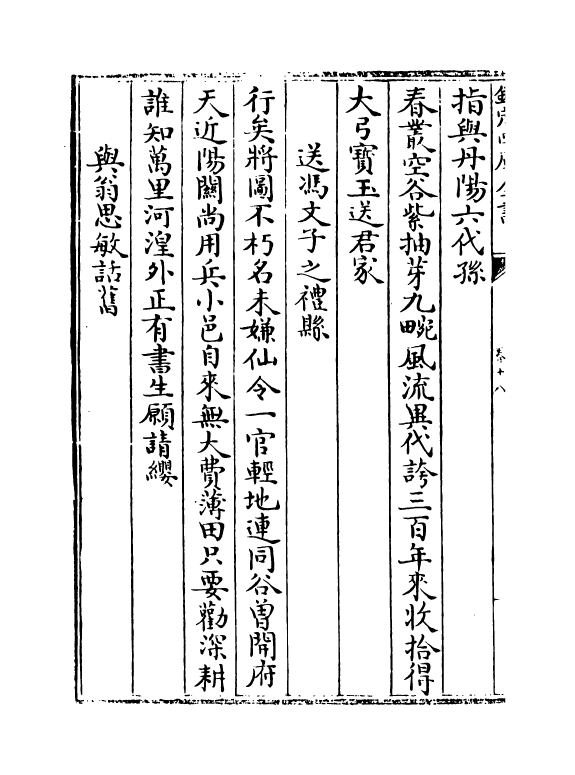 欽定四庫全書
卷十八
指與丹陽六代孫
春叢空谷紫抽芽九畹風流異代誇三百年來收拾得
大弓寶玉送君家
送馮文子之禮縣
行矣將圖不朽名未嫌仙令一官輕地連同谷曾開府
天近陽關尚用兵小邑自來無大費薄田只要勸深耕
誰知萬里河湟外正有書生願請纓
與翁思敏話舊